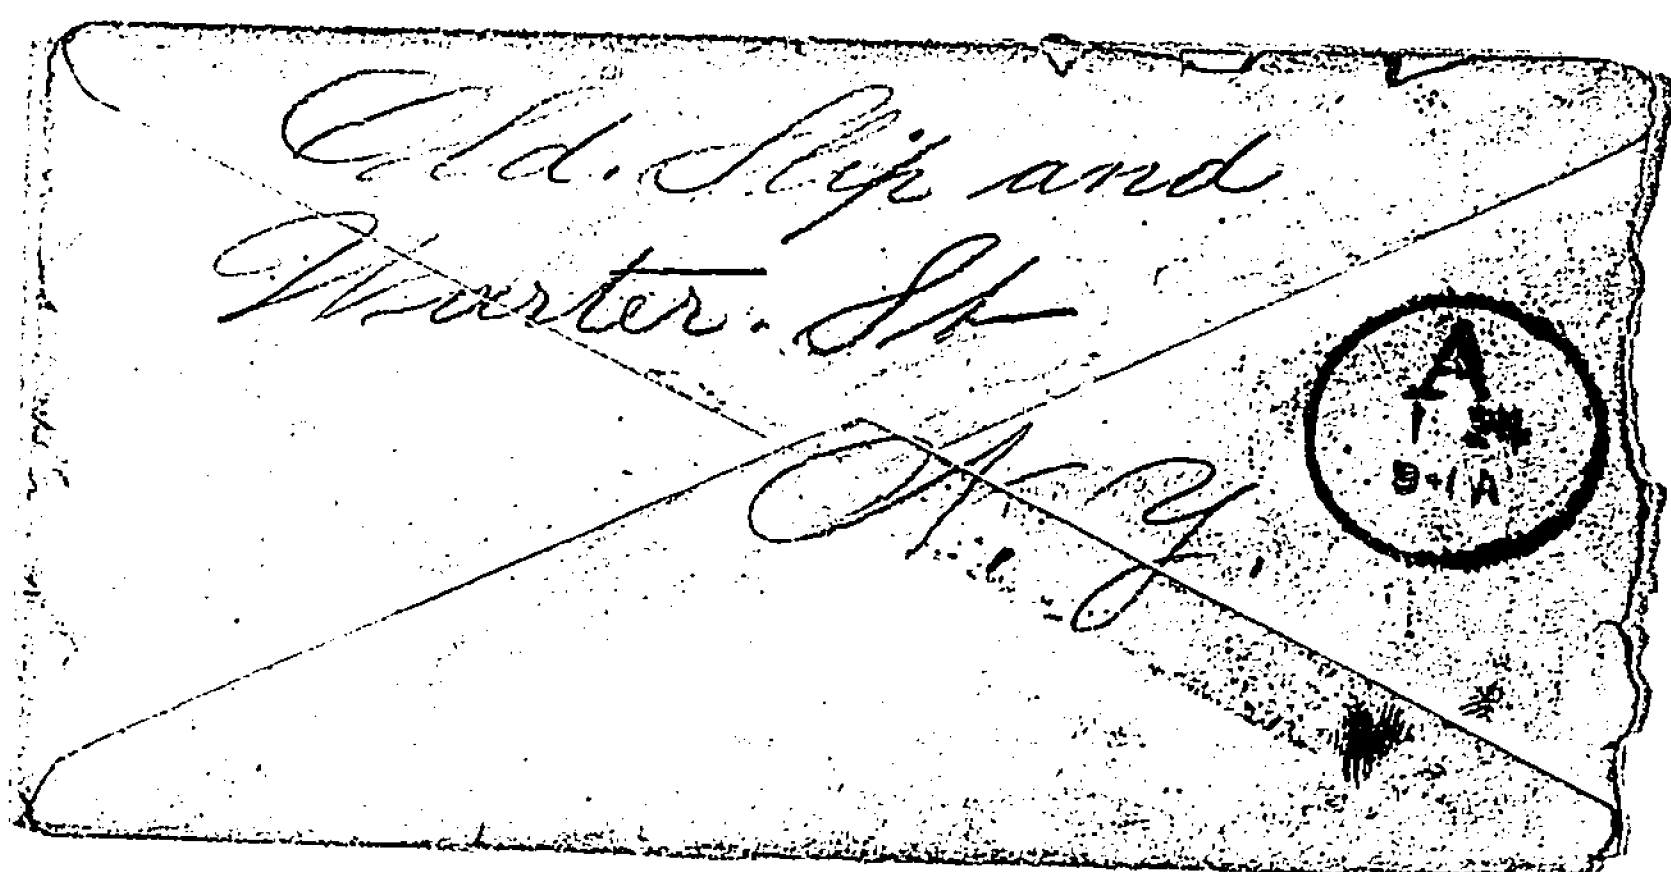 Old. Slip and
Warter. St
N. Y.
A
9-1A